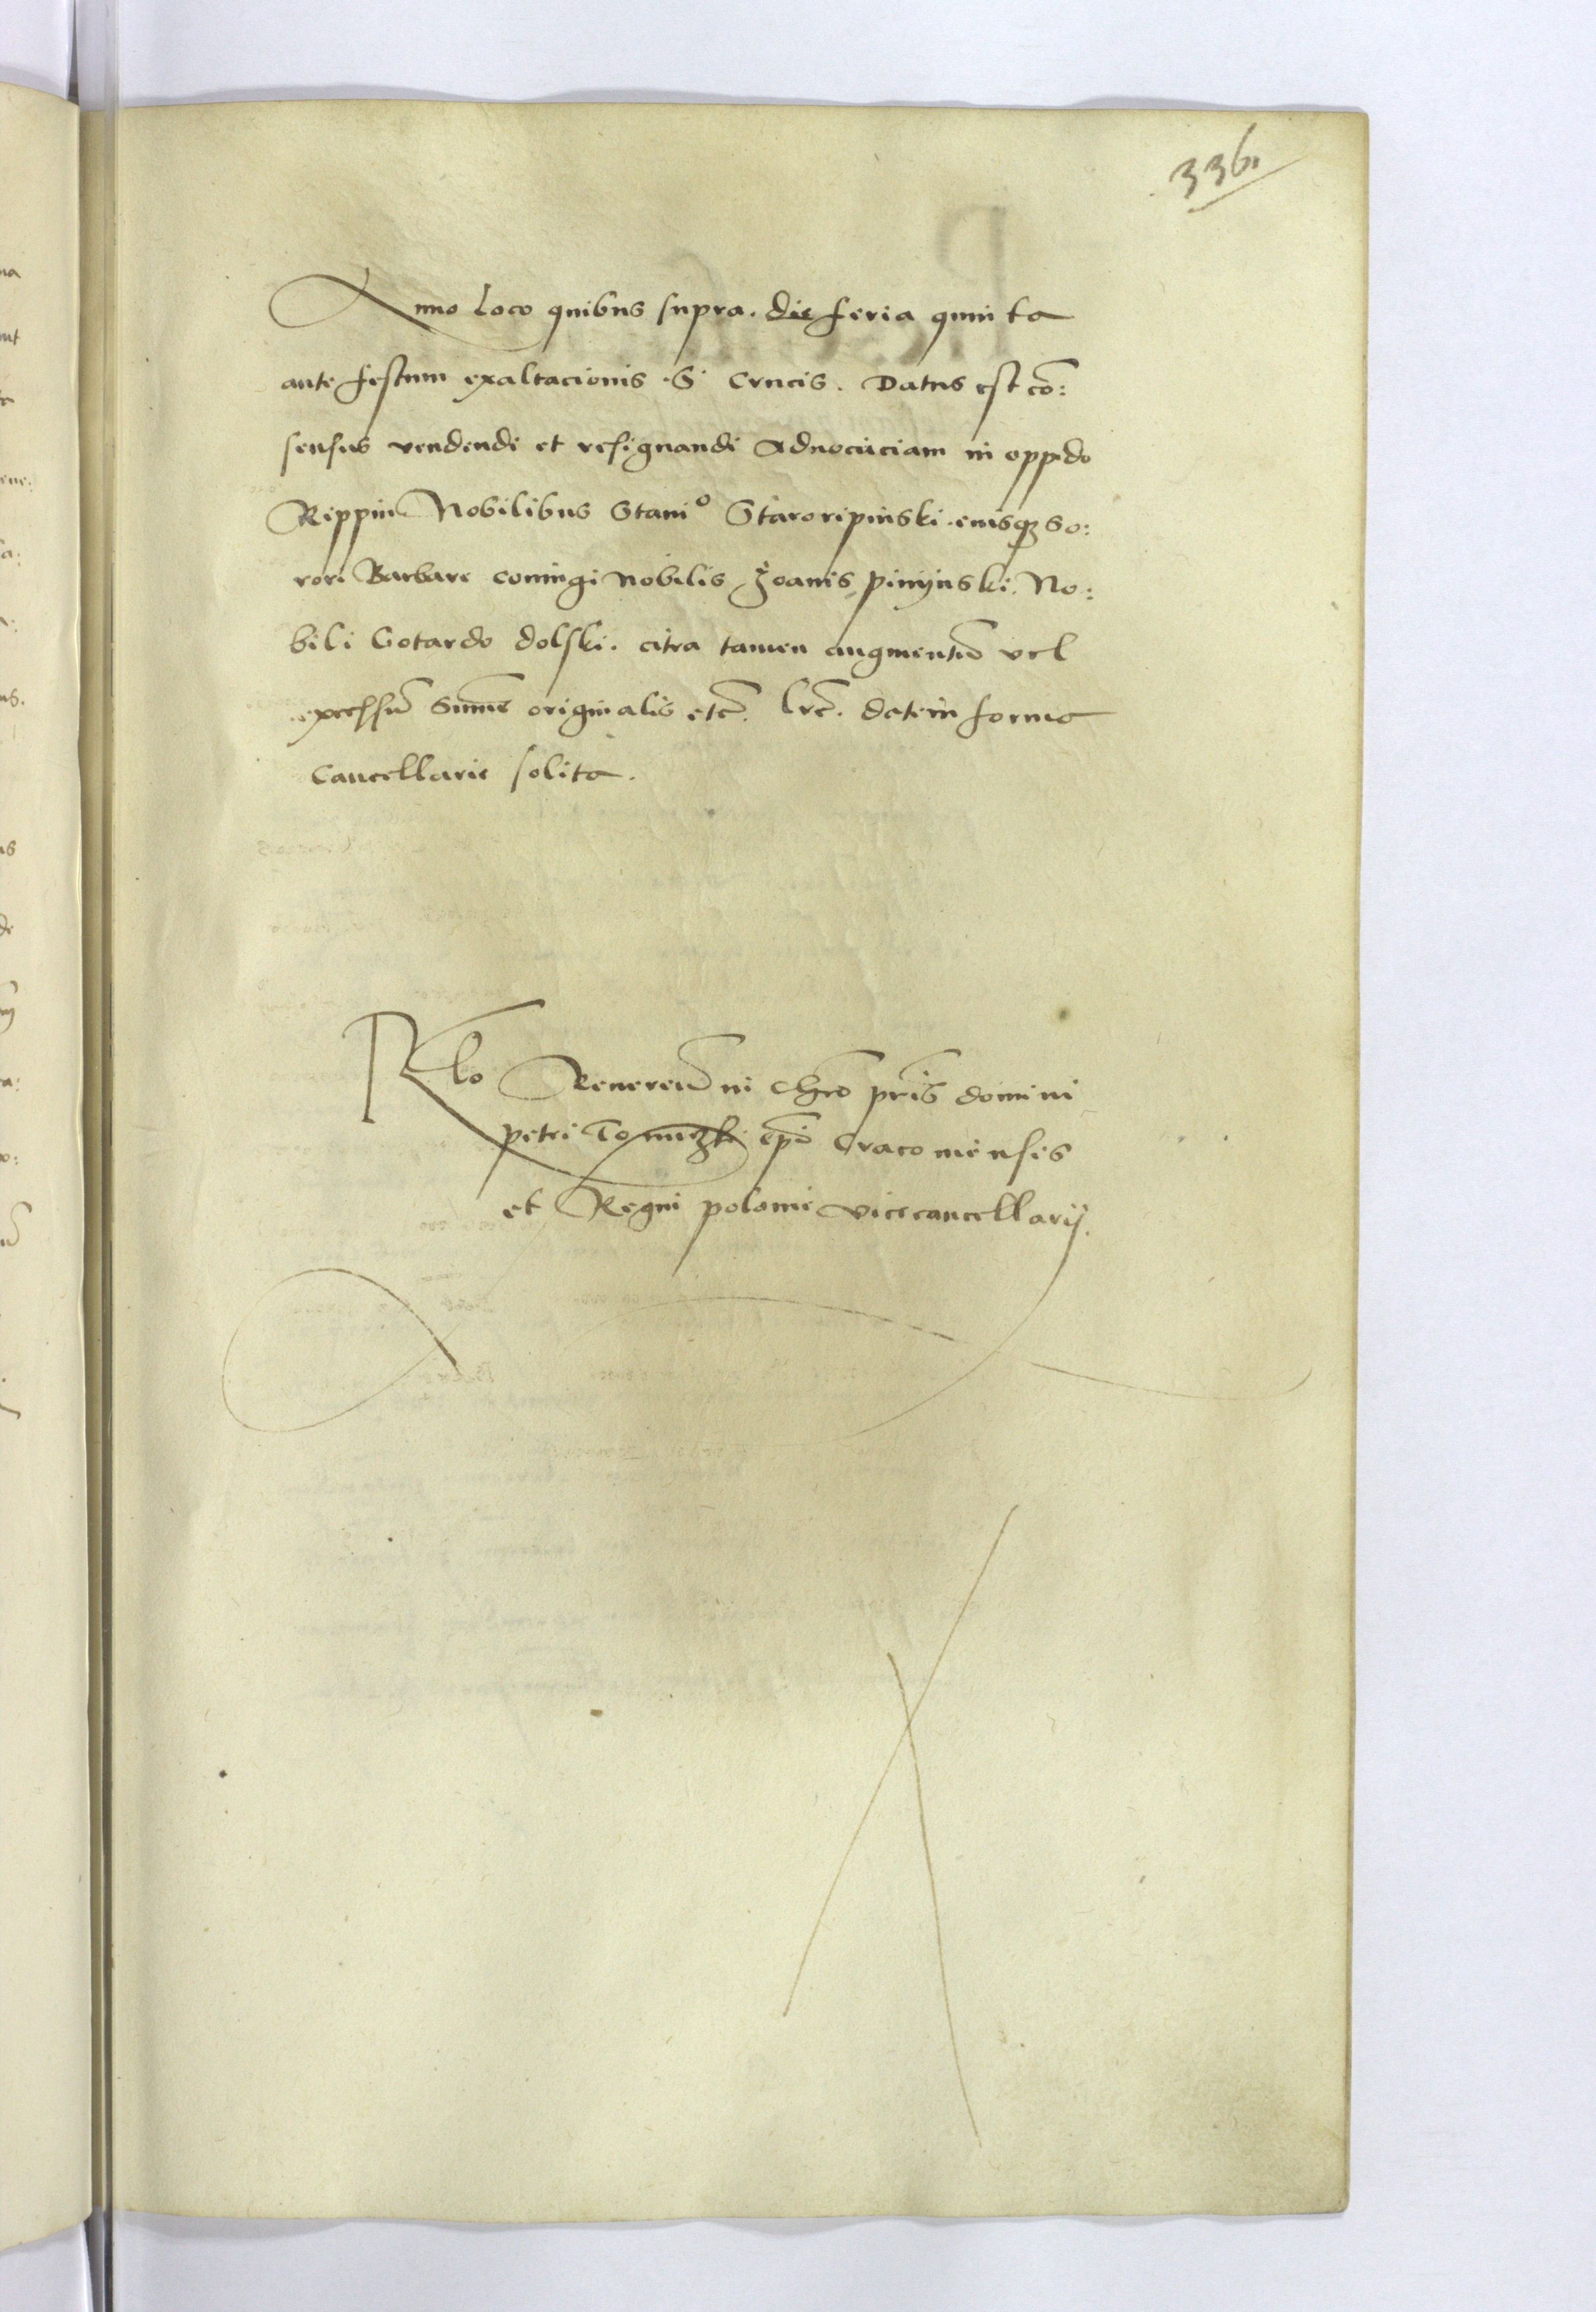 336
Anno loco quibus supra. die feria quinta
ante festum exaltacionis .S. Crucis. Datus est cō:
sensus vendendi et resignandi Aduocaciam in oppido
Rippin Nobilibus Staniº Staroripinski. eiusqз so:
rori Barbare coniugi nobilis Joanis pinynski. No:
bili Gotardo dolski. citra tamen augmentū vel
excessū summe originalis etc̄. Lrē. date in forma
Cancellarie solita.
Rlo Reueren̄ in chrō pr̄is domini
petri Tomiczki ep̄i Cracouiensis
et Regni polonie vicecancellarij.